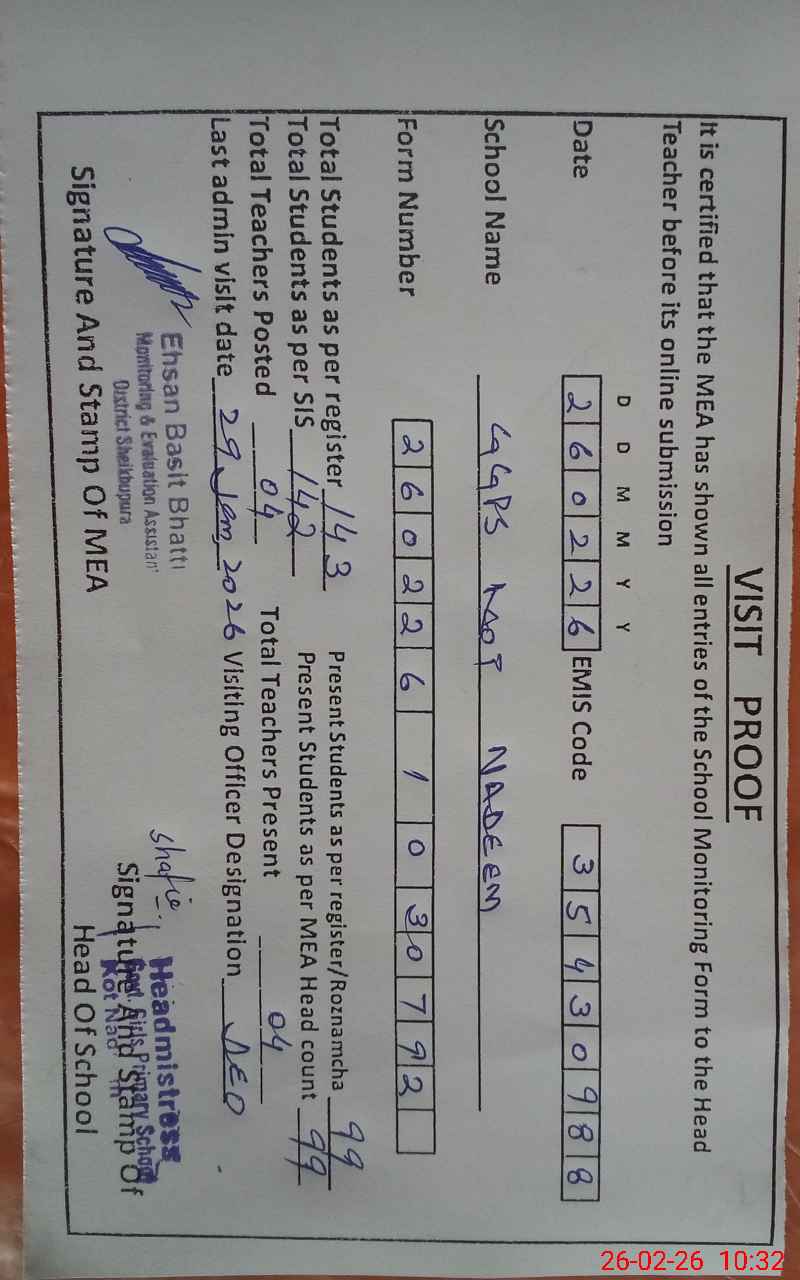 VISIT PROOF
It is certified that the MEA has shown all entries of the School Monitoring Form to the Head
Teacher before its online submission
D D M M Y Y
Date 260226 EMIS Code 35430988
School Name GGPS KOT NADEEM
Form Number 260226 1 030792
Total Students as per register 143 Present Students as per register/Roznamcha 99
Total Students as per SIS 142 Present Students as per MEA Head count 99
Total Teachers Posted 04 Total Teachers Present 04
Last admin visit date 29 Jan, 2026 Visiting Officer Designation DEO
Ehsan Basit Bhatti
Monitoring & Evaluation Assistant
District Sheikhupura
Signature And Stamp Of MEA
Shafie
Headmistress
Govt. Girls Primary School
Kot Nad
Signature And Stamp Of
Head Of School
26-02-26 10:32